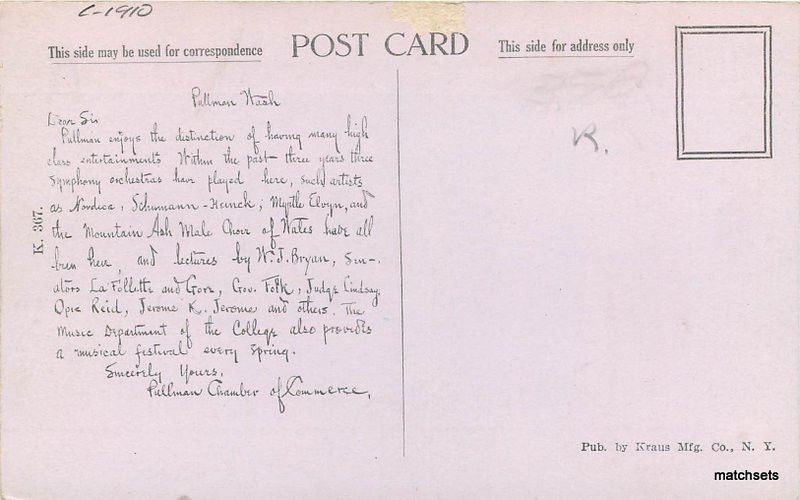 C-1910
This side may be used for correspondence
POST CARD
This side for address only
Pullman Wash
Dear Sir
Pullman enjoys the distinction of having many high
class entertainments Within the past three years three
Symphony orchestras have played here, such artists
as Nordica, Schumann-Heinck, Myrtle Elvyn, and
the Mountain Ash Male Choir of Wales have all
been here, and lectures by W. J. Bryan, Sen-
ators La Follette and Gore, Gov. Folk, Judge Lindsay,
Opie Reid, Jerome K. Jerome and others. The
Music Department of the College also provides
a musical festival every Spring.
Sincerely Yours,
Pullman Chamber of Commerce,
K. 367.
R.
Pub. by Kraus Mfg. Co., N. Y.
matchsets